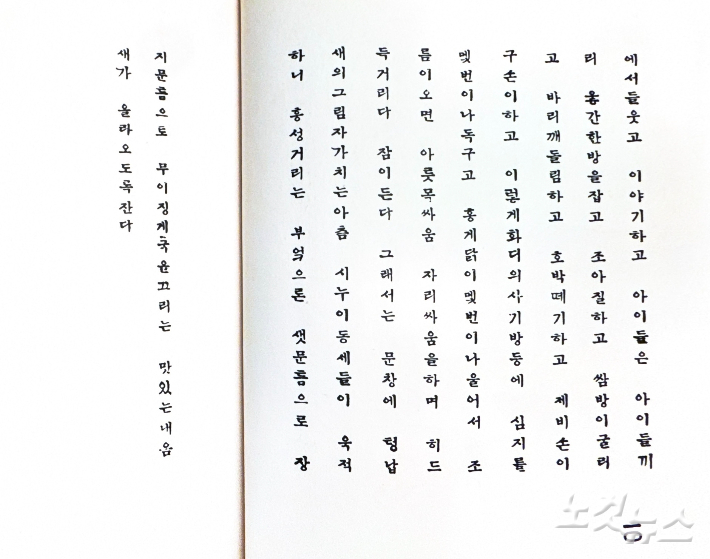 에서들웃고 이야기하고 아이들은 아이들끼
리 웋간한방을잡고 조아질하고 쌈방이굴려
고 바리깨돌림하고 호박떼기하고 제비손이
구손이하고 이렇게화디의사기방등에 심지를
멫번이나독구고 홍게닭이멫번이나울어서 조
름이오면 아릇목싸움 자리싸움을하며 히드
득거리다 잠이든다 그래서는 문창에 텅납
새의그림자가치는아츰 시누이동세들이 욱적
하니 흥성거리는 부엌으론 샛문틈으로 장
一〇
지문틈으로 무이징게국을끄리는 맛있는내음
새가 올라오도록잔다
노컷뉴스